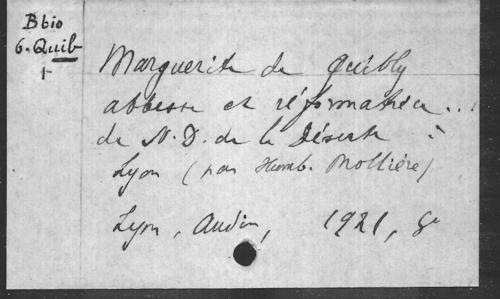 Bbio
6. Quib
1
Marguerite de Quibly
abbesse et réformatrice ...
de N. D. de la Déserte à
Lyon (par Humb. Mollière)
Lyon, Audin, 1921, 8°